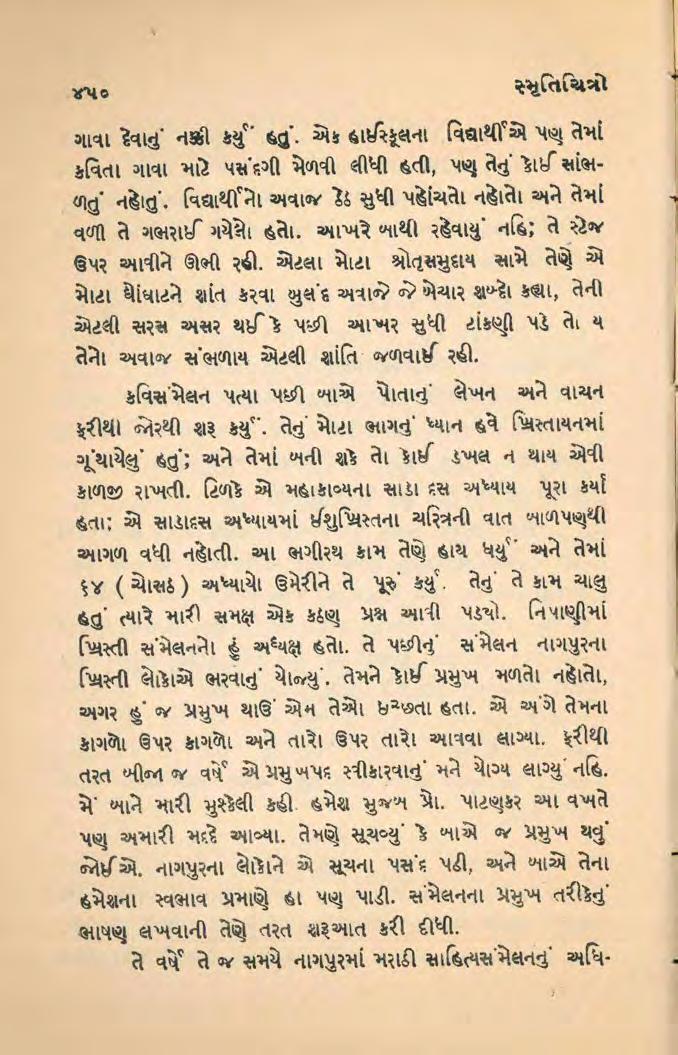 ૪૫૦
સ્મૃતિચિત્રો
ગાવા દેવાનું નક્કી કર્યું હતું. એક હાઈસ્કૂલના વિદ્યાર્થીએ પણ તેમાં
કવિતા ગાવા માટે પસંદગી મેળવી લીધી હતી, પણ તેનું કોઈ સાંભ-
ળતું નહોતું. વિદ્યાર્થીનો અવાજ ઠેઠ સુધી પહોંચતો નહોતો અને તેમાં
વળી તે ગભરાઈ ગયેલો હતો. આખરે બાથી રહેવાયું નહિ; તે સ્ટેજ
ઉપર આવીને ઊભી રહી. એટલા મોટા શ્રોતૃસમુદાય સામે તેણે એ
મોટા ઘોંઘાટને શાંત કરવા બુલંદ અવાજે જે બેચાર શબ્દો કહ્યા, તેની
એટલી સરસ અસર થઈ કે પછી આખર સુધી ટાંકણી પડે તો ય
તેનો અવાજ સંભળાય એટલી શાંતિ જળવાઈ રહી.
કવિસંમેલન પત્યા પછી બાએ પોતાનું લેખન અને વાચન
ફરીથી જોરથી શરૂ કર્યું. તેનું મોટા ભાગનું ધ્યાન હવે ખ્રિસ્તાયનમાં
ગૂંથાયેલું હતું; અને તેમાં બની શકે તો કોઈ ડખલ ન થાય એવી
કાળજી રાખતી. ટિળકે એ મહાકાવ્યના સાડા દસ અધ્યાય પૂરા કર્યા
હતા; એ સાડાદસ અધ્યાયમાં ઈશુખ્રિસ્તના ચરિત્રની વાત બાળપણથી
આગળ વધી નહોતી. આ ભગીરથ કામ તેણે હાથ ધર્યું અને તેમાં
૬૪ ( ચોસઠ ) અધ્યાયો ઉમેરીને તે પૂરું કર્યું. તેનું તે કામ ચાલુ
હતું ત્યારે મારી સમક્ષ એક કઠણ પ્રશ્ન આવી પડયો. નિપાણીમાં
ખ્રિસ્તી સંમેલનનો હું અધ્યક્ષ હતો. તે પછીનું સંમેલન નાગપુરના
ખ્રિસ્તી લોકોએ ભરવાનું યોજ્યું. તેમને કોઈ પ્રમુખ મળતો નહોતો,
અગર હું જ પ્રમુખ થાઉં એમ તેઓ ઇચ્છતા હતા. એ અંગે તેમના
કાગળો ઉપર કાગળો અને તારો ઉપર તારો આવવા લાગ્યા. ફરીથી
તરત બીજા જ વર્ષે એ પ્રમુખપદ સ્વીકારવાનું મને યોગ્ય લાગ્યું નહિ.
મેં બાને મારી મુશ્કેલી કહી. હમેશ મુજબ પ્રો. પાટણકર આ વખતે
પણ અમારી મદદે આવ્યા. તેમણે સૂચવ્યું કે બાએ જ પ્રમુખ થવું
જોઈએ. નાગપુરના લોકોને એ સૂચના પસંદ પડી, અને બાએ તેના
હમેશના સ્વભાવ પ્રમાણે હા પણ પાડી. સંમેલનના પ્રમુખ તરીકેનું
ભાષણ લખવાની તેણે તરત શરૂઆત કરી દીધી.
તે વર્ષે તે જ સમયે નાગપુરમાં મરાઠી સાહિત્યસંમેલનનું અધિ-